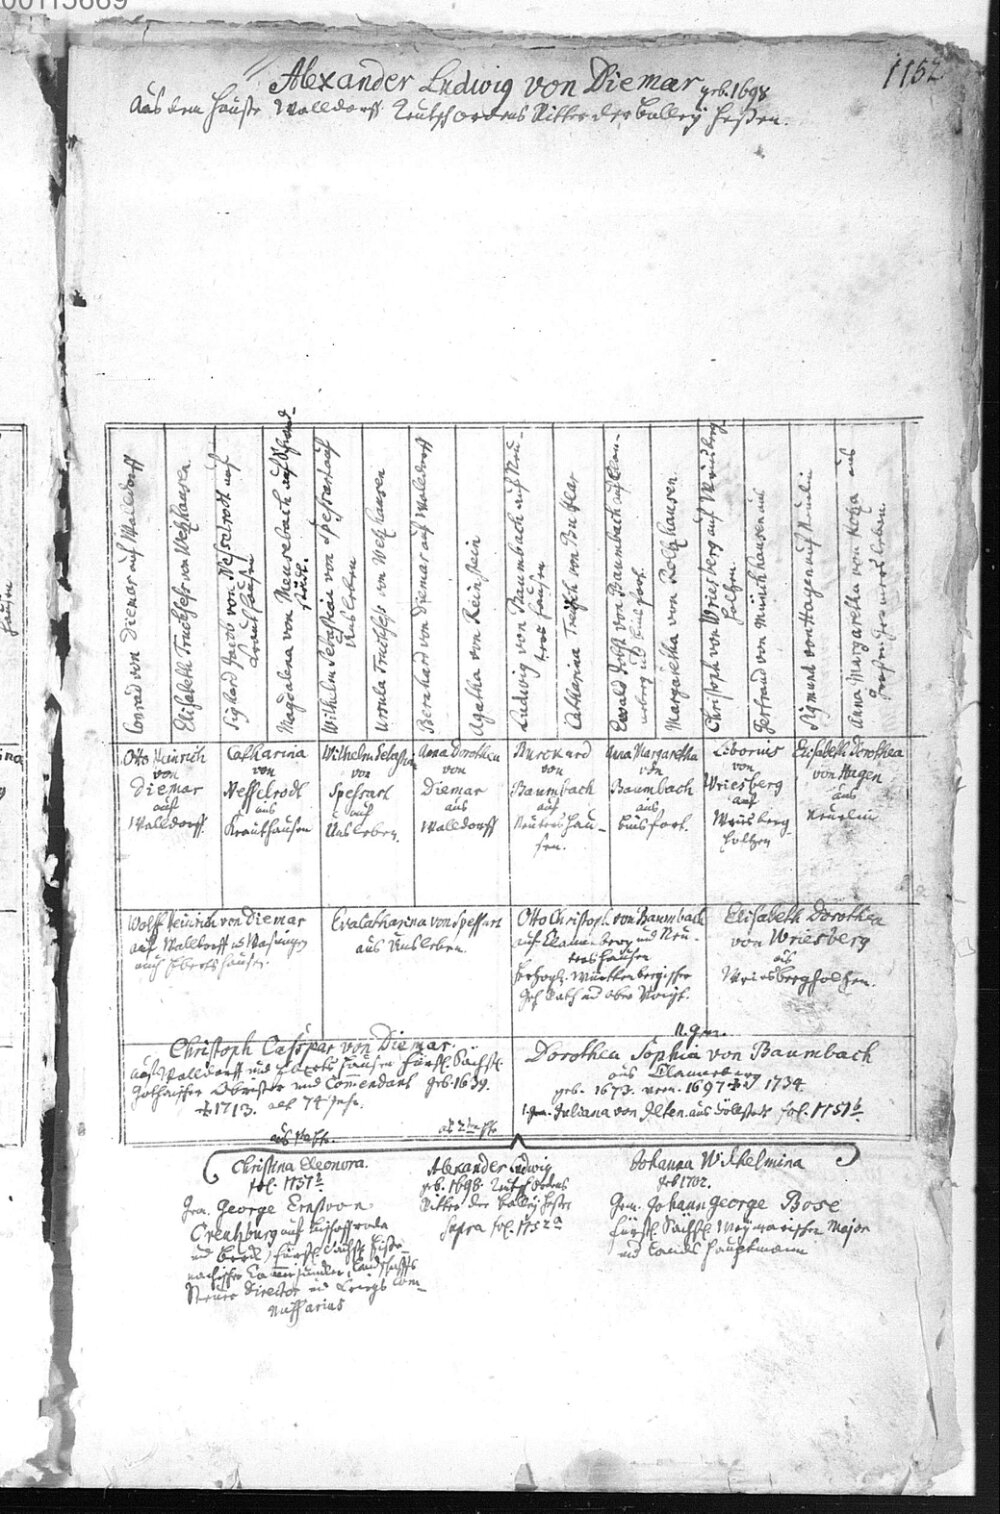 1152
Alexander Ludwig von Diemar geb. 1698
Aus dem Hauße Walldorff Teutsch ordens Ritter der Balleÿ Heßen.
Conrad von Diemar auf Walldorff
Elisabeth Truchseß von Wetzhausen
Sighard Jacob von Nesselrodt auf
Krauthausen
Magdalena von Meusebach auf
Wilhelm Sebastian von Spessart auf
Unsleben
Ursula Truchseß von Wetzhausen
Bernhard von Diemar auf Walldorff
Agatha von Reinstein
Ludwig von Baumbach auf Neu-
ters hausen
Catharina Treusch von Butlar
Ewald Jobst von Baumbach auf
und Binsfort
Margaretha von Rolshausen
Christoph von Wriesberg auf Wrisberg
holtzen
Gertraud von Münchhausen aus
Sigmund von Hagen auf
Anna Margaretha von Kotza aus
Otto Heinrich
von
Diemar
auf
Walldorff
Catharina
von
Nesselrodt
aus
Krauthausen
Wilhelm Sebastian
von
Spessart
auf
Unsleben
Anna Dorothea
von
Diemar
aus
Walldorff
Burckard
von
Baumbach
auf
Neuters hau-
sen.
Anna Margaretha
von
Baumbach
aus
Binsfort.
Liborius
von
Wriesberg
auf
Wrisberg
holtzen
Elisabeth Dorothea
von Hagen
aus
Wolff Heinrich von Diemar
auf Walldorff u Wasungen
auch Ebertshausen.
Eva Catharina von Spessart
aus Unsleben.
Otto Christoph von Baumbach
auf und Neu-
ters hausen
Herzogl. Württenbergischer
Geh Rath und ober Voigt.
Elisabeth Dorothea
von Wriesberg
aus
Wriesbergholtzen.
Christoph Casspar von Diemar.
auf Walldorff und Eberts hausen Fürstl. Sächss.
Gothaischer Obrister und Commendant geb. 1639.
† 1713. alt 74 Jahr.
2. Gem.
Dorothea Sophia von Baumbach
aus
geb. 1673. verm. 1697 † 1734
1. Gem. Juliana von Ilten. aus fol. 1751b.
Christina Eleonora.
fol. 1757b
Gem. George Ernst von
Creutzburg auf Bischoffroda
Fürstl. Sächss.
Cammerjuncker, Landschaffts
Steuer Director und Kriegs Com-
missarius
aus 2ter Ehe
Alexander Ludwig
geb. 1698. Teutsch Ordens
Ritter der Balleÿ Hessen
Supra fol. 1752a
Johanna Wilhelmina
geb 1702.
Gem. Johann George Bose
Fürstl. Sächss. Weymarischer Major
und Lands hauptmann